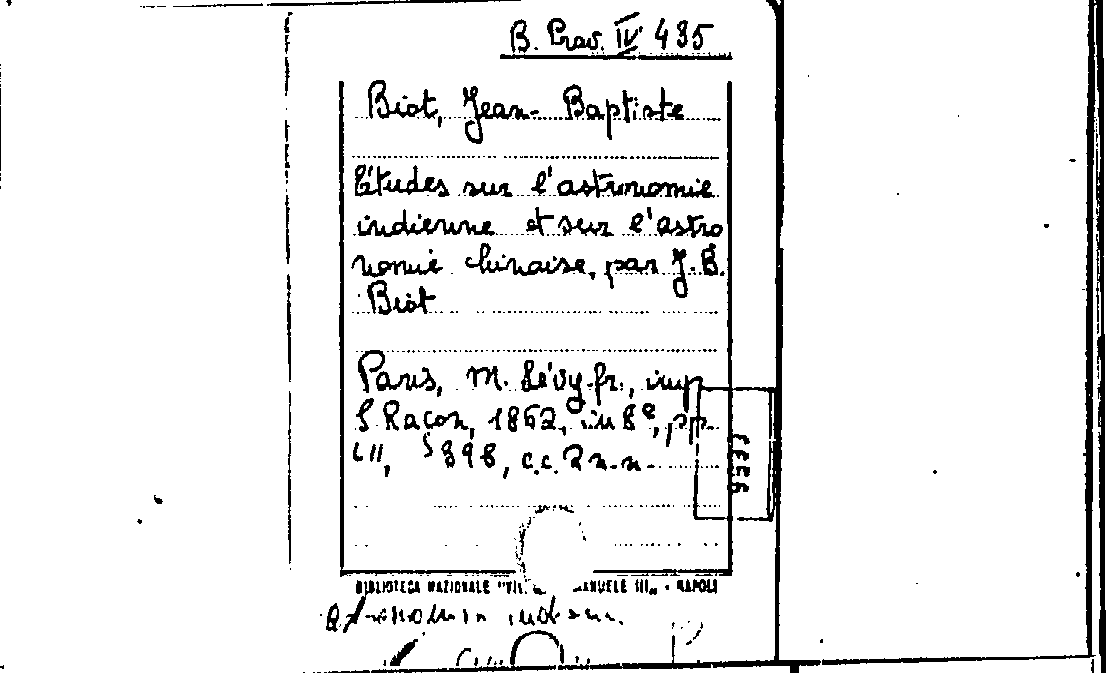 B. Prov. IV 435
Biot, Jean-Baptiste
Études sur l'astronomie
indienne et sur l'astro
nomie chinoise, par J.B.
Biot
Paris, M. Lévy fr., imp
S Raçon, 1862, in 8º, pp.
LII, 398, c.c. 2 n.n.
BIBLIOTECA NAZIONALE "VIT. EMANUELE III" - NAPOLI